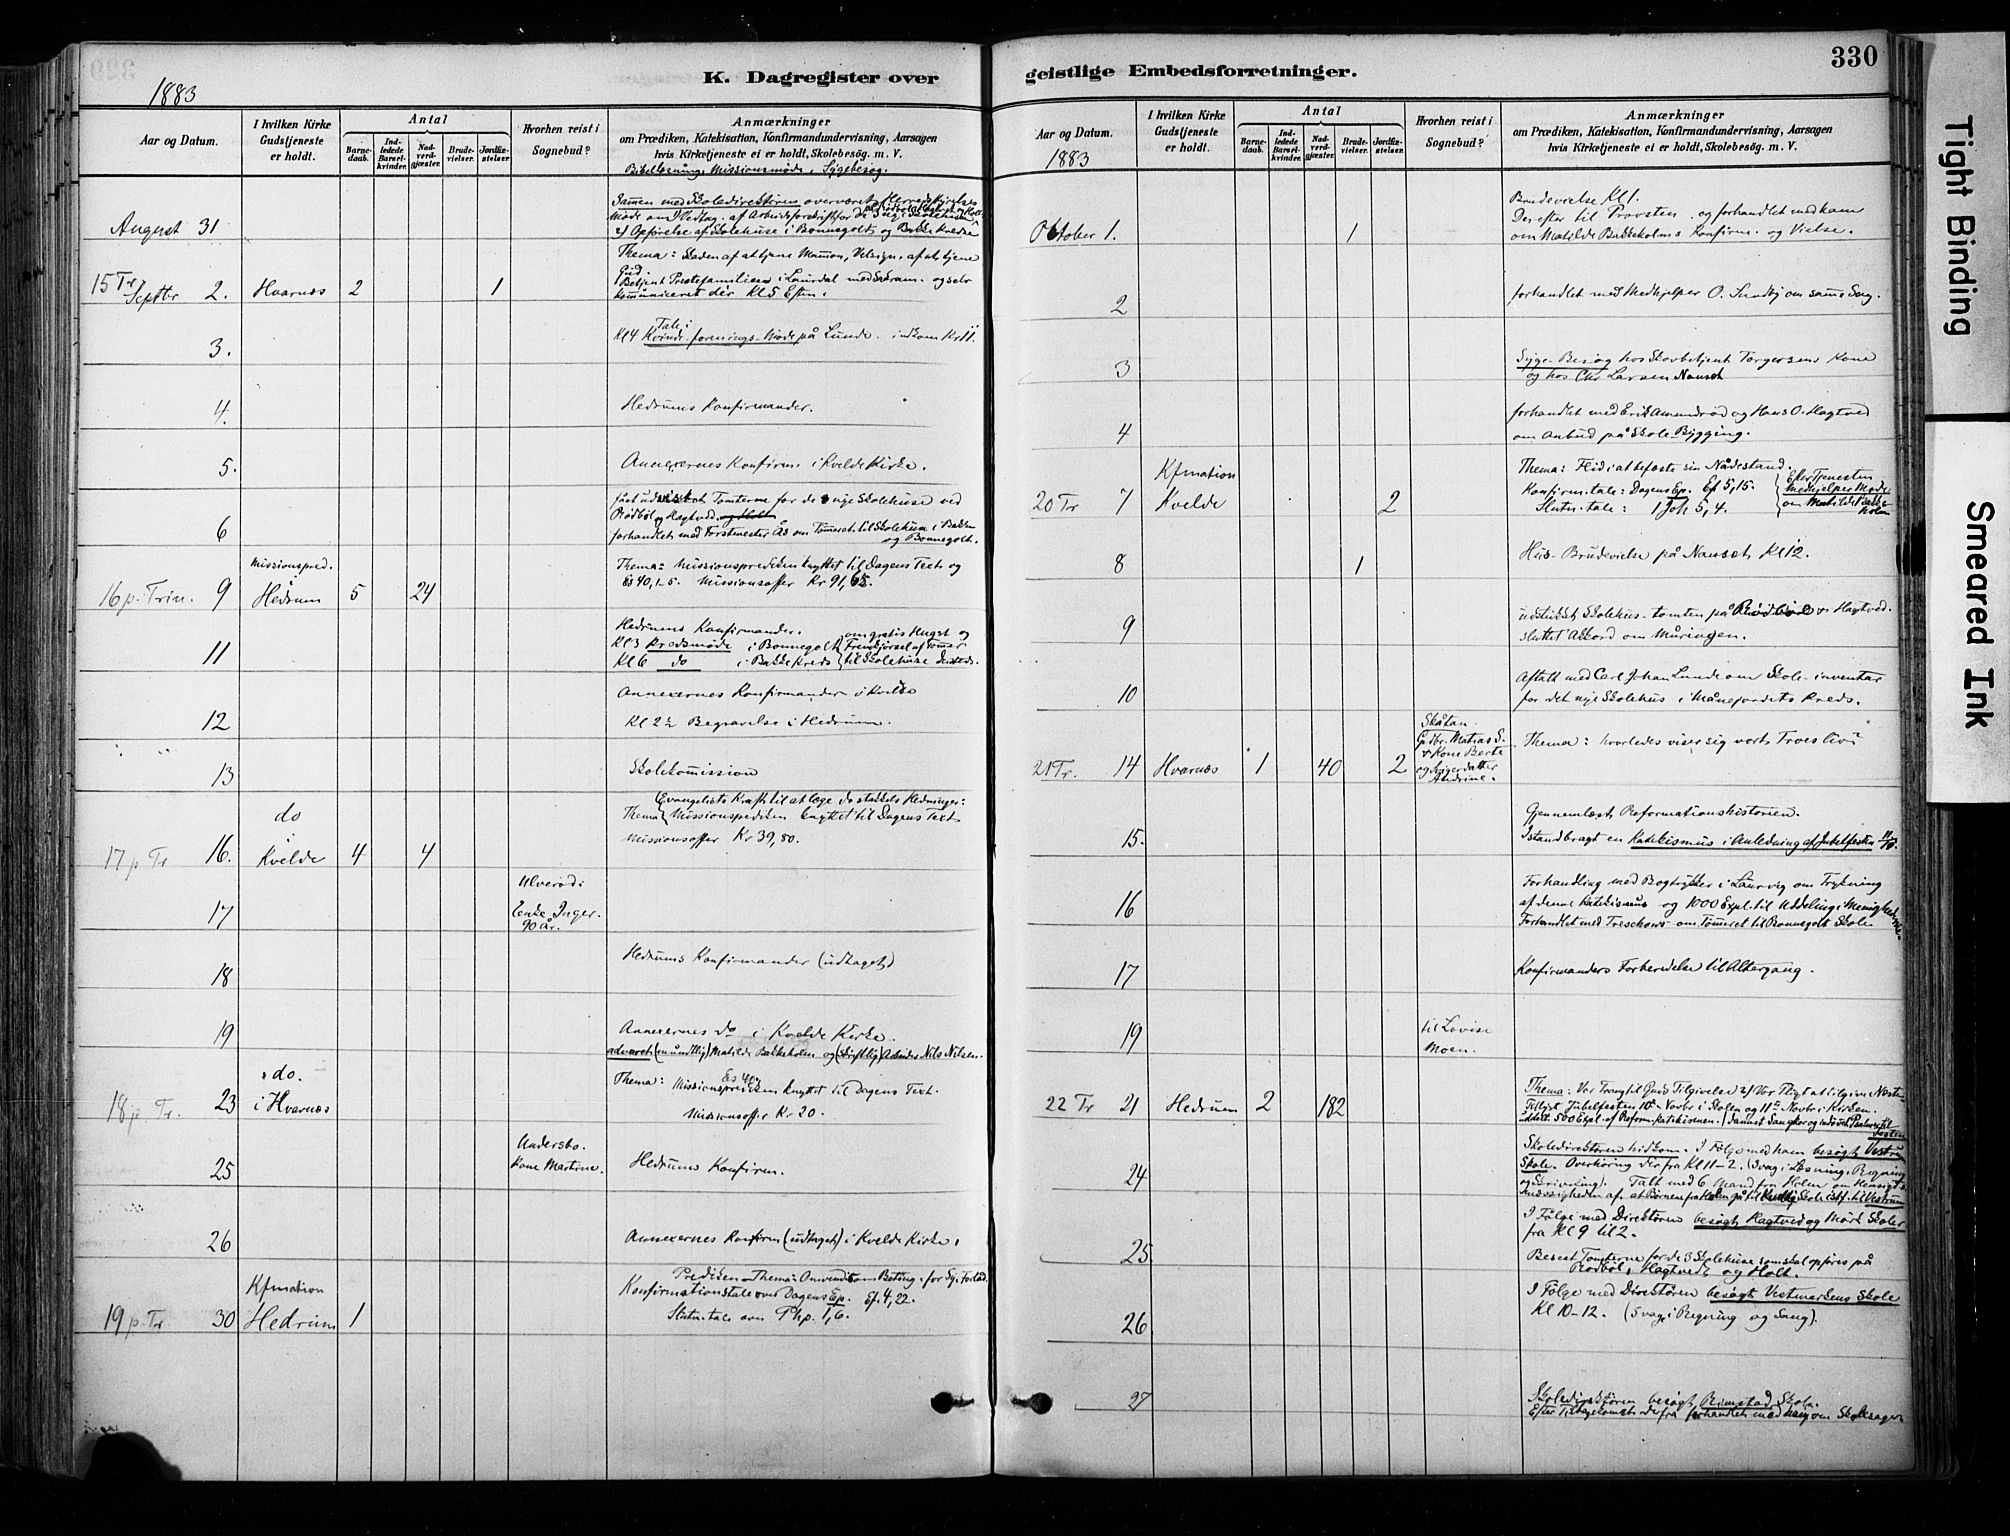 K. Dagregister over
1883
Aar og Datum.
I hvilken Kirke Gudstjeneste er holdt.
Antal
Barnedaab.
Indledede Barselkvinder.
Nadverdgjæster.
Brudevielser.
Jordfæstelser.
Hvorhen reist i Sognebud?
Anmærkninger
om Prædiken, Katekisation, Konfirmandundervisning, Aarsagen
hvis Kirketjeneste ei er holdt, Skolebesøg. m. V.
Bibellæsning, Missionsmøde, Sygebesøg.
August 31
Samen med Skoledirektøren overværet Herredsstyrelses
Møde om 1) Vedtag. af
2) Opførelse af Skolehuse i Bonnegolt og Bakke Kredse
15 Tr Septbr 2. Hvarnes 2 1
Thema: Skaden af at tjene Mamon, Velsign. af at tjene
Gud.
Betjent Præstefamilien i Laurdal med Sakram. og selv
kommuniceret der Kl 5 Eftm.
3.
Tale i
Kl 4 Kvinde-forenings-Møde på Lunde. indkom Kr 11.
4.
Hedrums Konfirmander.
5.
Annexernes Konfirm. i Kvelde Kirke.
6
fåst udvisket Tomterne for de nye Skolehuse ved
Rødbøl og Hagtved og Holt
forhandlet med Forstmester Ås om Tømret til Skolehuse i Bakken
og Bonnegolt.
Missionspræd.
16 p. Trin. 9 Hedrum 5 24
Thema: Missionsprediken knyttet til Dagens Text og
Es 40, 1-5. Missionsoffer Kr 91,65.
11
Hedrums Konfirmander.
Kl 3 Kredsmøde i Bonnegolt
Kl 6 do i Bakke Kreds
om gratis Hugst og
Fremkjørsel af Tømmer
til Skolehuse
12
Annexernes Konfirmander i Kvelde
Kl 2½ Begravelse i Hedrum.
13
Skolekomission
do
17 p Tr 16. i Kvelde 4 4
Evangeliets Kraft til at læge de stakkels Hedninger:
Thema Missionsprediken knyttet til Dagens Text
Missionsoffer Kr 39,80.
17
Ulverød:
Enke Inger.
90 år.
18
Hedrums Konfirmander (udtaget)
19
Annexernes do i Kvelde Kirke.
advaret (mundtlig) Matilde Bakkeholm og (skriftlig) Arbeider Nils Nilsen.
do.
18 p. Tr. 23 i Hvarnes
Thema: Missionsprediken knyttet til Dagens Text.
Missionsoffer Kr 20.
25
Undersbo.
Kone Martine.
Hedrums Konfirm.
26
Annexernes Konfirm (udtaget) i Kvelde Kirke.
Kfmation
19 p. Tr 30 Hedrum 1
Prediken-Thema: Omvendt om Beting. for Sy. Forlad.
Konfirmationstale over Dagens Ep. Ef. 4,22.
Slutn.tale over Php. 1,6.
geistlige Embedsforretninger.
330
Aar og Datum.
1883
I hvilken Kirke Gudstjeneste er holdt.
Antal
Barnedaab.
Indledede Barselkvinder.
Nadverdgjæster.
Brudevielser.
Jordfæstelser.
Hvorhen reist i Sognebud?
Anmærkninger
om Prædiken, Katekisation, Konfirmandundervisning, Aarsagen
hvis Kirketjeneste ei er holdt, Skolebesøg. m. V.
October 1. 1
Brudevielse Kl 1.
Derefter til Provsten og forhandlet med ham
om Matilde Bakkeholms Konfirm. og Vielse.
2
forhandlet med Medhjelper O. Sundby om samme Sag.
3
Syge-Besøg hos Skovbetjent Torgersens Kone
og hos Chr Larsen Nanset
4
forhandlet med Erik Amundrød og Hans O. Hagtved
om Anbud på Skole-Bygging.
Kfmation
20 Tr 7 Kvelde 2
Thema: Flid i at befæste sin Nådestand.
Konfirm.tale: Dagens Ep. Ef 5,15.
Slutn.tale: 1 Joh 5,4.
Efter Tjenesten
medhjelper Møde
om Matilde Bakke
holm
8 1
Hus-Brudevielse på Nanset Kl 12.
9
udstukket Skolehus-tomten på Rødbøl v. Hagtved.
sluttet Akkord om Muringen.
10
Aftalt med Carl Johan Lunde om Skole-inventar
for det nye Skolehus i Månejordets Kreds.
21 Tr. 14 Hvarnes 1 40 2
Skåtan.
Gdbr. Matias S.
+ Kone Berte
og Svigerdatter
Andrine.
Thema: hvorledes viser sig vort Troesliv?
15.
Gjennemlæst Reformationshistorien.
Istandbragt en Katekismus i Anledning af Jubelfesten 11/10.
16
Forhandling med Bogtrykker i Laurvig om Trykning
af denne Katekismus og 1000 Expl. til Uddeling i Menighederne.
Forhandlet med Treschows om Tømret til Bonnegolt Skole
17
Konfirmanders Forberedelse til Altergang.
19
til Lovise
Moen.
22 Tr 21 Hedrum 2 182
Thema: Vor Trang til Guds Tilgivelse 2) Vor Pligt at tilgive Næsten
Tillyst Jubelfesten 10de Novbr i Skolen og 11te Novbr i Kirken.
uddelt 500 Expl. af Reform.katekismen. dannet Sangkor og indøvet Psalmer til
Festen
24
Skoledirektøren hidkom. I Følge med ham besøgt Vestrum
Skole. Overhøring der fra Kl 11-2. (Svag i Læsning, Regning
og Skrivning). Talt med 6 Mænd fra Holm om Hensigts-
mæssigheden af at Børnene fra Holm gå til Skole istf. til Vestrum
25
I Følge med Direktøren besøgt Hagtved og Mørk Skoler
fra Kl 9 til 2.
Beseet Tomterne for de 3 Skolehuse som skal opføres på
Rødbøl, Hagtvedt og Holt.
26
I Følge med Direktøren besøgt Vestmarkens Skole
Kl 10-12. (Svag i Regning og Sang).
27
Skoledirektøren besøgt Rimstad Skole.
Efter Tilbagekomst derfra forhandlet med ham om Skolesager
Tight Binding
Smeared Ink